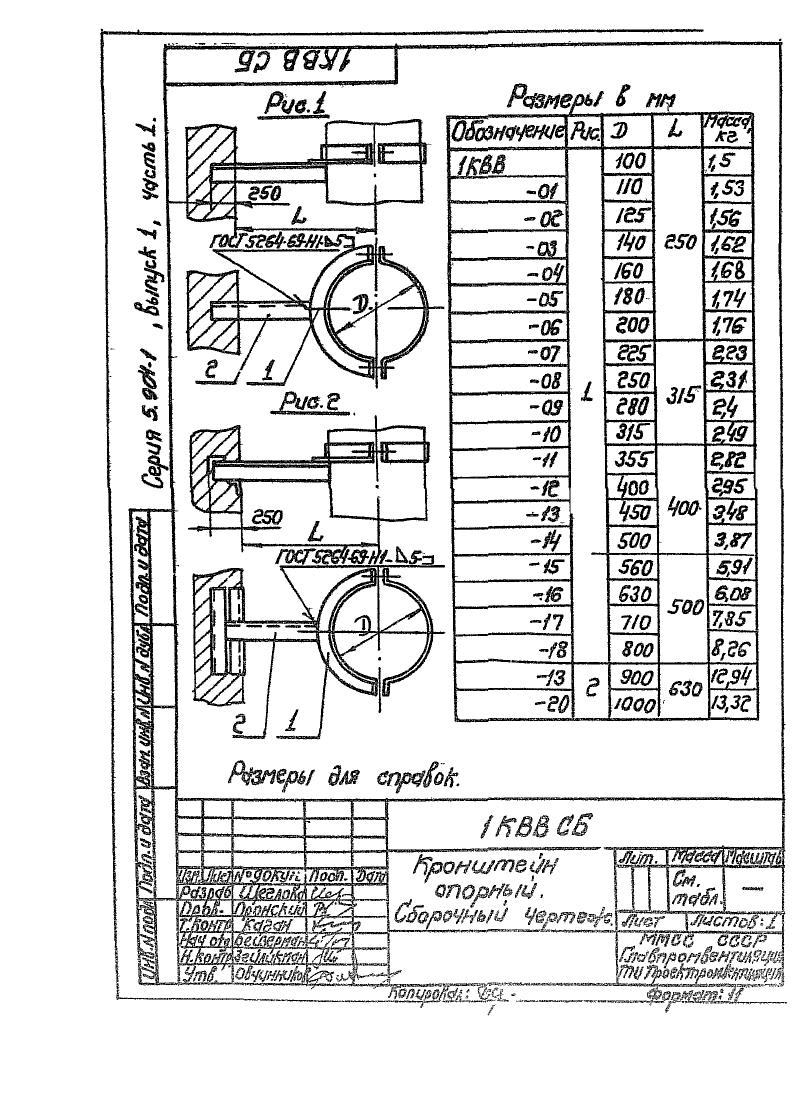 1КВВ СБ
Серия 5.904-1, выпуск 1, часть 1.
Рис.1
250
L
ГОСТ 5264-69-Н1-⊿5-
D
2 1
Рис.2
250
L
ГОСТ 5264-69-Н1-⊿5-
D
2 1
Размеры в мм
Обозначение Рис. D L Масса, кг
1КВВ 1 100 250 1,5
-01 110 1,53
-02 125 1,56
-03 140 1,62
-04 160 1,68
-05 180 1,74
-06 200 1,76
-07 225 315 2,23
-08 250 2,31
-09 280 2,4
-10 315 2,49
-11 355 400 2,82
-12 400 2,95
-13 450 3,48
-14 500 3,87
-15 560 500 5,91
-16 630 6,08
-17 710 7,85
-18 800 8,26
-13 2 900 630 12,94
-20 1000 13,32
Размеры для справок.
Подп. и дата
Инв. N дубл
Взам инв. N
Подп. и дата
Инв. N подл
1КВВ СБ
Изм. Лист N° докум. Подп. Дата
Разраб Щеглова
Пров. Пронский
Т.контр Каган
Нач отд
Н.контр
Утв. Овчинников
Кронштейн
опорный.
Сборочный чертеж.
Лит. Масса Масштаб
См. табл. —
Лист Листов: 1
ММСС СССР
Главпромвентиляция
Копировал:
Формат: 11